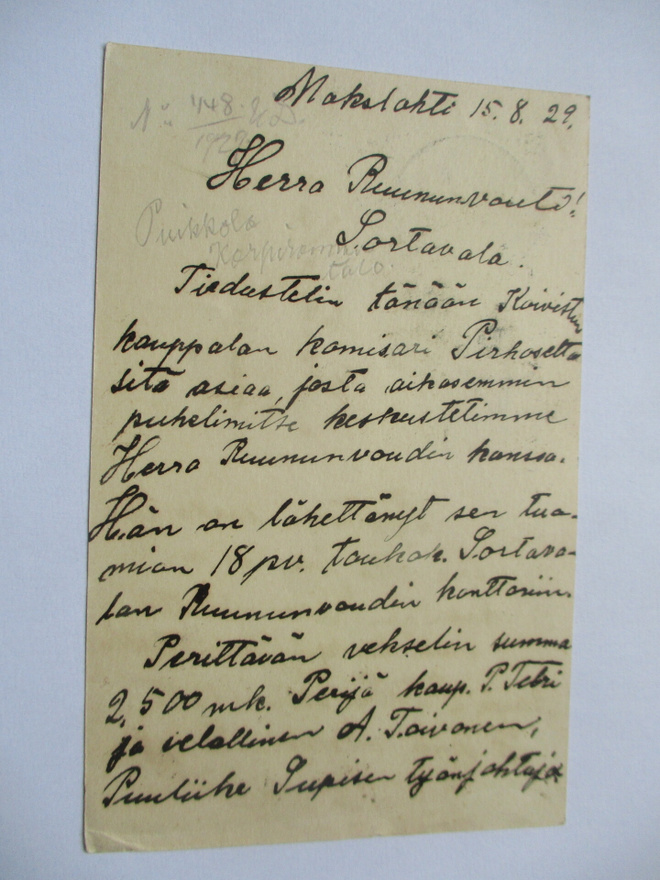 Makslahti 15.8.29.
No 448
1929
Herra Ruununvouti!
Sortavala.
Puikkola
talo
Tiedustelin tänään Koiviston
kauppalan komisari Pirhoselta
sitä asiaa, josta aikasemmin
puhelimitse keskustelimme
Herra Ruununvoudin kanssa.
Hän on lähettänyt sen tuo-
mion 18 pv. toukok. Sortava-
lan Ruununvoudin konttoriin.
Perittävän vekselin summa
2,500 mk. Perijä kaup. P. Tebri
ja velallinen A. Toivonen,
Puuliike Supisen työnjohtaja